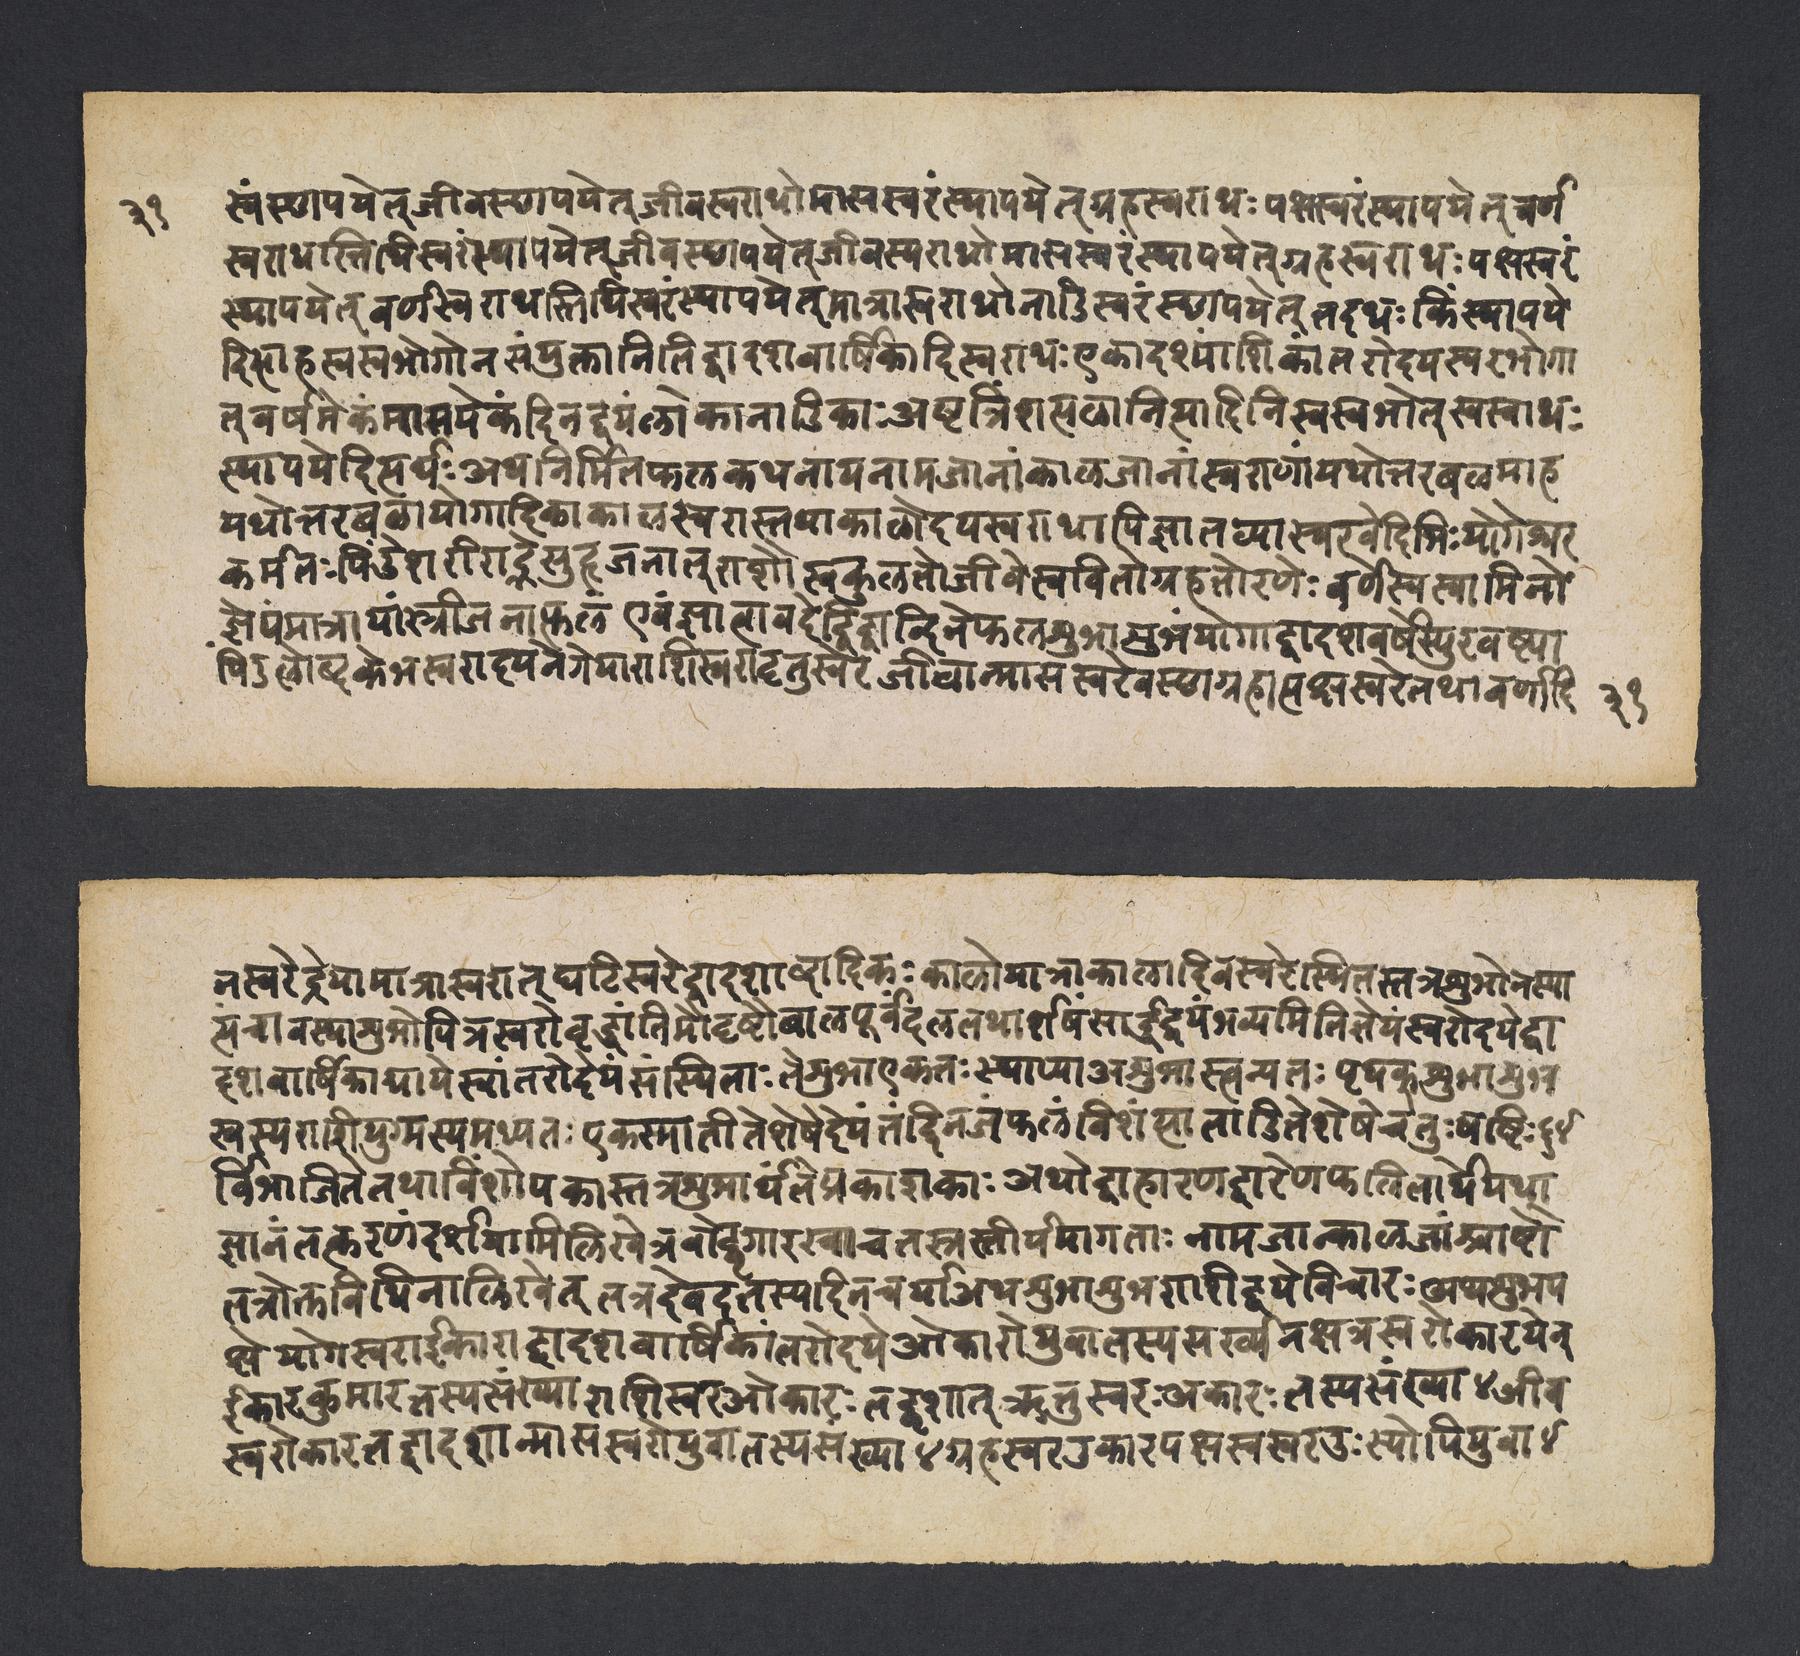 ३१
स्वं स्छापयेत् जीवस्छापयेत् जीवस्वराधो मासस्वरं स्थापयेत् ग्रहस्वराधः पक्षस्वरं स्थापयेत् वर्ण
स्वराधस्तिथिस्वरं स्थापयेत् जीवस्छापयेत् जीवस्वराधो मासस्वरं स्थापयेत् ग्रहस्वराधः पक्षस्वरं
स्थापयेत् वर्णस्वराधस्तिथिस्वरं स्थापयेत् मात्रास्वराधो नाडिस्वरं स्छापयेत् तदधः किं स्थापये
दित्याह स्वस्वभोगोन संयुक्तानिति द्वादशवार्षिकादिस्वराधः एकादश्यांशिकांतरोदयस्वरभोगा
त् वर्षमेकं मासमेकं दिनद्वयं लोकानाडिकाः अष्टत्रिंशत्पलानित्यादिनि स्वस्वभोत् स्वस्वाधः
स्थापयेदित्यर्थः अथ निर्मितफलकथनाय नामजानां कालजानां स्वराणां यथोत्तरबलमाह
यथोत्तरबला योगादिका कालस्वरास्तथा कालोदयस्वराथापि ज्ञातव्या स्वरवेदिभिः योगेश्वर
कर्मतः पिंडे शरीराद्ने सुहृजनात् राशौ स्वकुलतो जीवे स्ववितो ग्रहतो रणेः वर्णेस्वस्वामिनो
ज्ञेयं मात्रायां स्त्रीजनात्फलं एवं ज्ञात्वा वदेद्विद्वान्दिनेफलशुभाशुभं योगाद्वादशवर्षेस्युरवष्ट्या
पिंडतोष्टकेभस्वरादयनेगेया राशिस्वरादृतुस्वरे जीवान्मासस्वरेवस्छाग्रहात्पक्षस्वरे तथा वर्णादि
३१
नस्वरे ज्ञेया मात्रास्वरात् घटिस्वरे द्वादशाब्दादिकः कालो मात्राकाला दिवस्वरेस्मितस्तत्र शुभोनस्या
त्पंचावस्था शुभोपि त्रस्वरो वृद्धांतिमौ दृष्टौ बालपूर्वदलतथा शेषं सार्द्धद्वयं भव्यमिति ज्ञेयं स्वरोदये द्वा
दशवार्षिकाद्या ये स्वांतरोदेयं संस्थिताः ते शुभा एकतः स्थाप्या अशुभास्त्वन्यतः पृथक् शुभाशुभ
स्वस्य राशियुग्मस्य मध्यतः एकस्मातीते शेषेदेयं तंद्दिनजं फलं विशंत्या ताडिते शेषे चतुःषष्टिः ६४
र्विभाजिते तथा विंशोपकास्तत्र शुभार्थतेप्रकाशकाः अथोद्वाहारणद्वारेण फलितार्थेयथा
ज्ञानं तत्करणं दर्शयामि लिखेत्रवोर्द्धगारस्वाचतस्त्रस्तीर्यमागताः नामजान्कालजांश्चाष्टौ
तत्रोक्तविधिना लिखेत् तत्र देवदत्तस्य दिनचर्या अथ शुभाशुभराशीद्वये विचारः अथ शुभप
क्षे योगेस्वरा ईकारा द्वादशवार्षिकांतरोदये ओकारो युवातस्य सख्य नक्षत्रस्वरो कारयेन्
ईकारकुमारतस्य संख्या राशिस्वर ओकारः तद्वशात् ऋतुस्वरः अकारः तस्य संख्या ४ जीव
स्वरोकारतद्वादशान्मासस्वरो युवातस्य संख्या ४ ग्रहस्वर उकार पक्षस्वस्वर उः स्योपियुवा ४